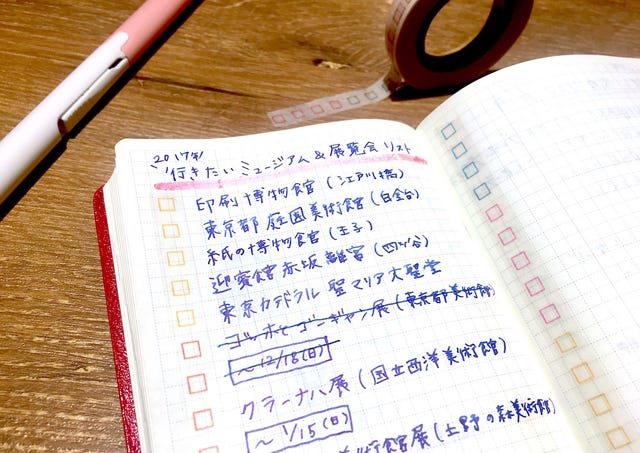 2017年
行きたい ミュージアム & 展覧会 リスト
印刷博物館 (江戸川橋)
東京都庭園美術館 (白金台)
紙の博物館 (王子)
迎賓館赤坂離宮 (四ツ谷)
東京カテドラル 聖マリア大聖堂
ゴッホとゴーギャン展 (東京都美術館)
〜12/18(日)
クラーナハ展 (国立西洋美術館)
〜1/15(日)
美術館展 (上野の森美術館)